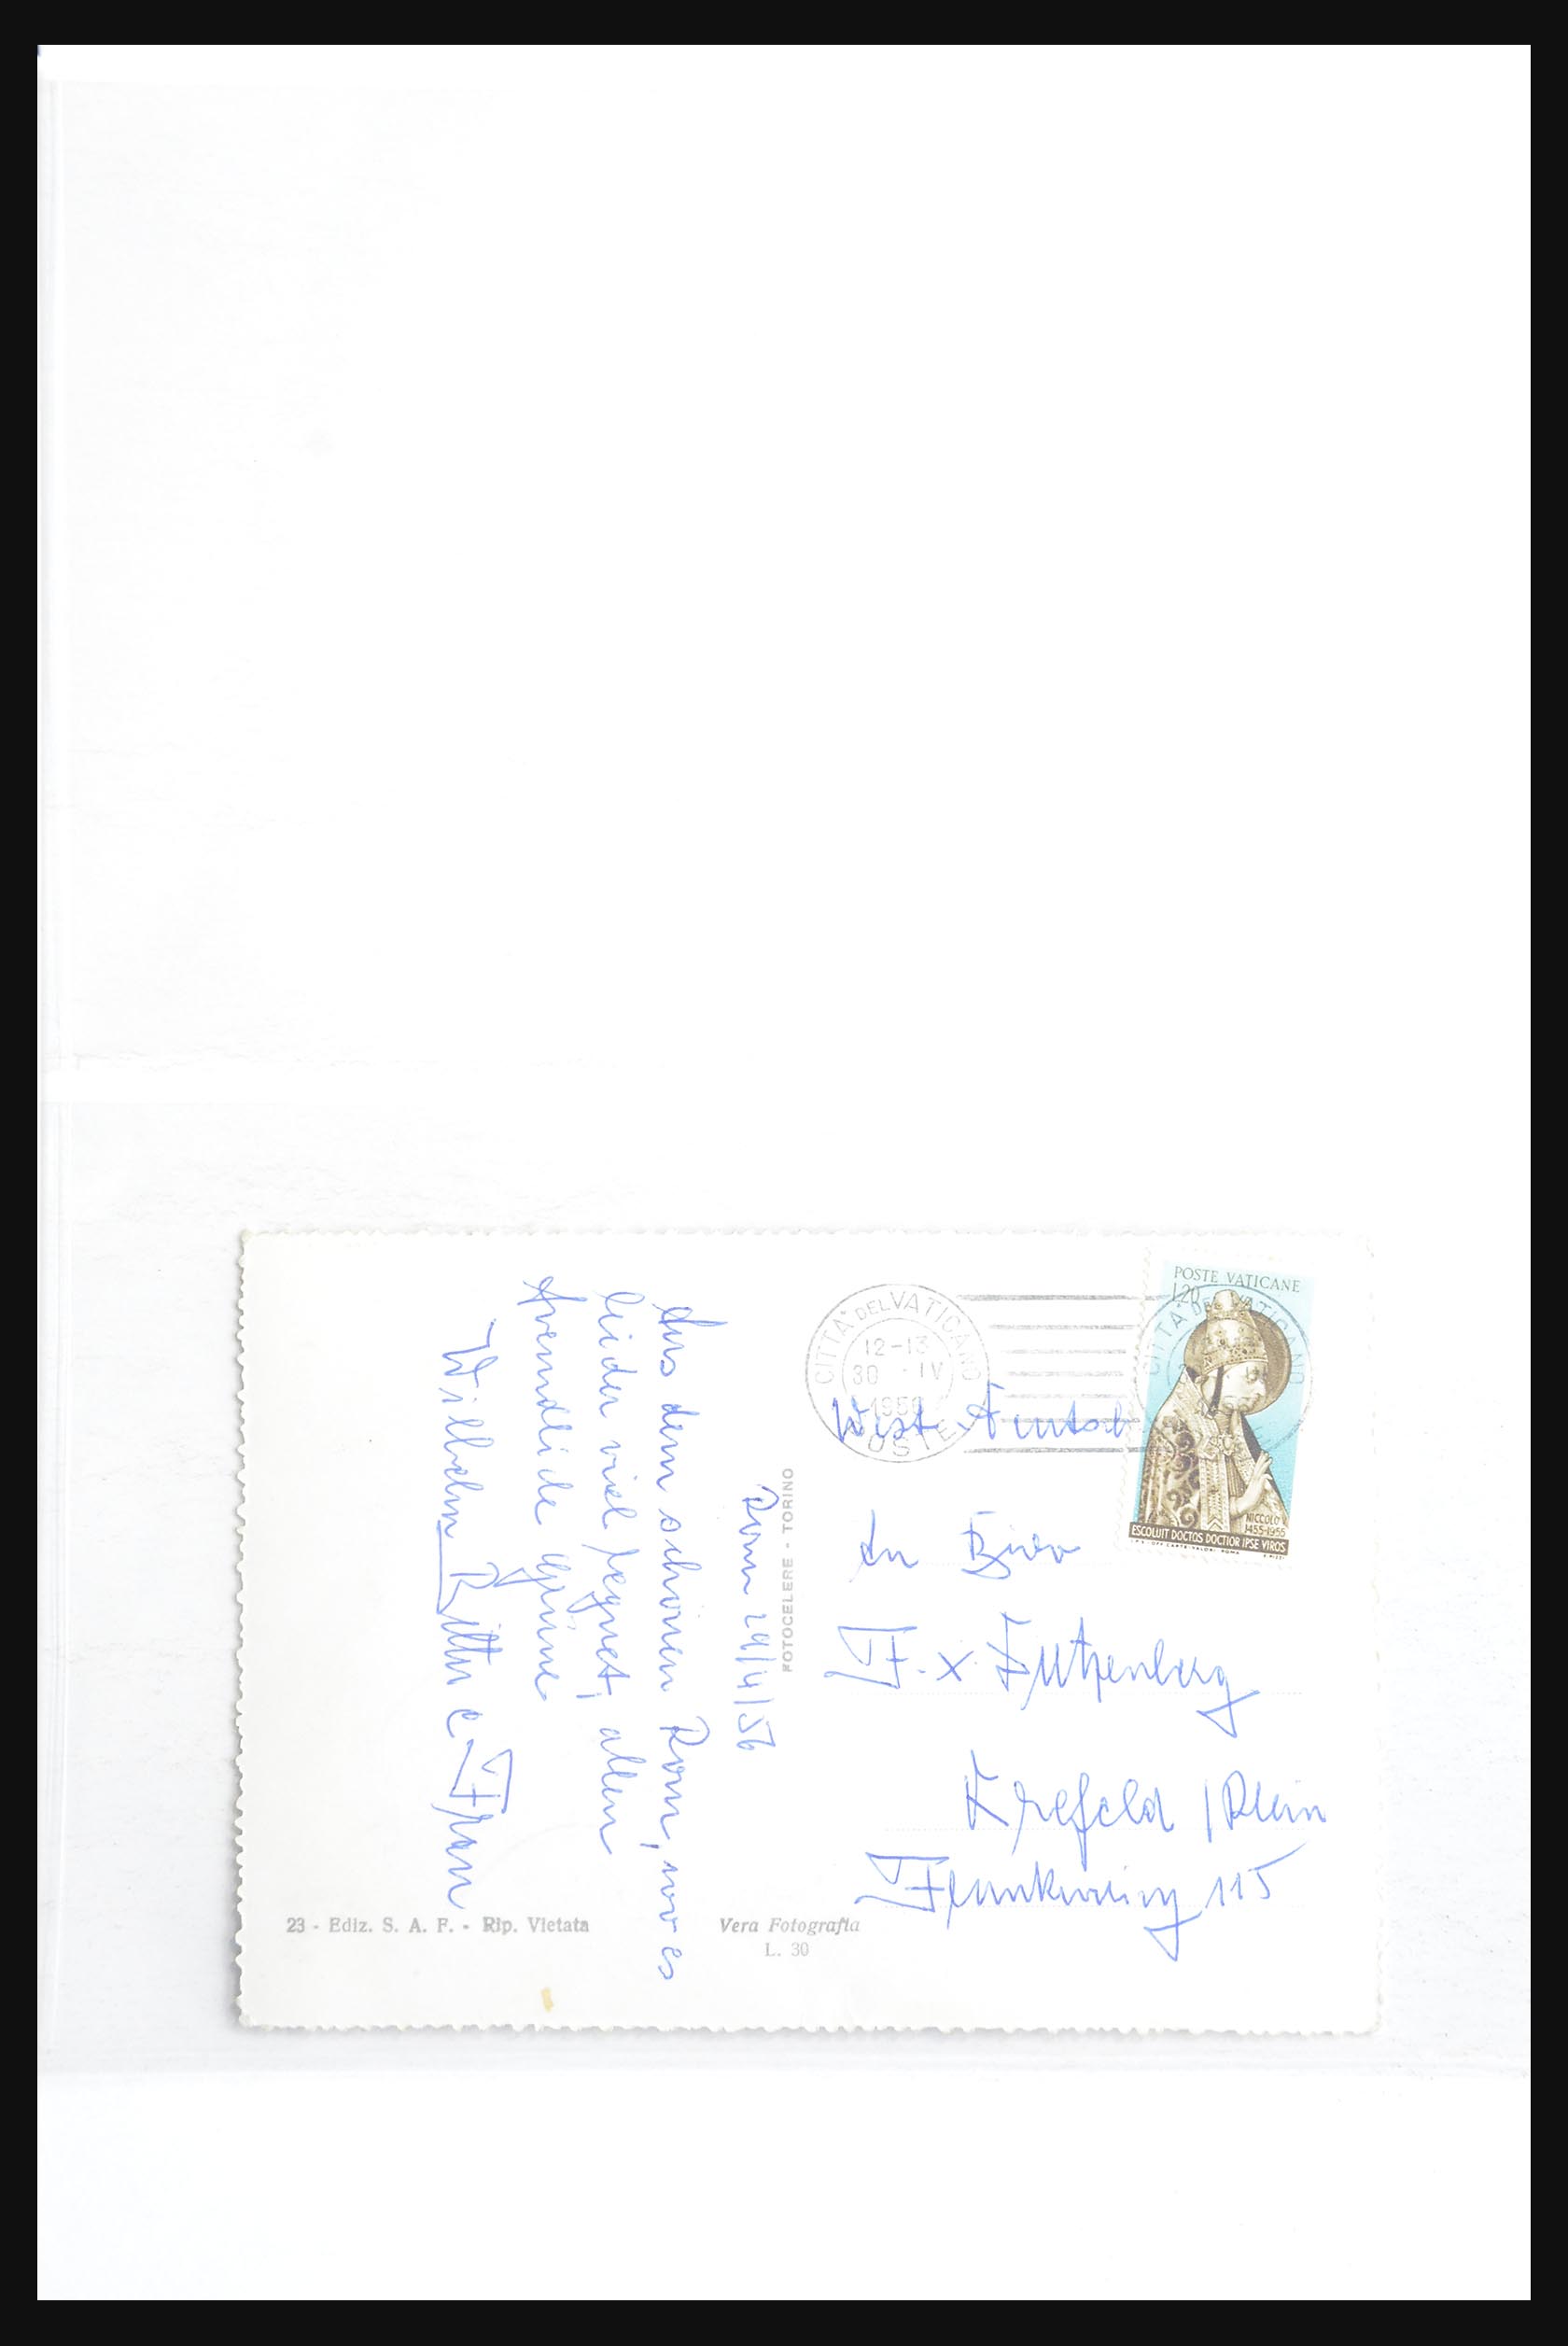 Rom 29/4/56
Aus dem schönen Rom, wo es
leider viel regnet, allen
freundliche Grüsse
Wilhelm Ritter u. Frau
FOTOCELERE - TORINO
CITTA DEL VATICANO
12-13
30 · IV
1956
POSTE
POSTE VATICANE
L20
NICCOLO V
1455-1955
ESCOLUIT DOCTOS DOCTIOR IPSE VIROS
West
An Büro
F. X.
Krefeld / Rhein
115
23 - Ediz. S. A. F. - Rip. Vietata
Vera Fotografia
L. 30